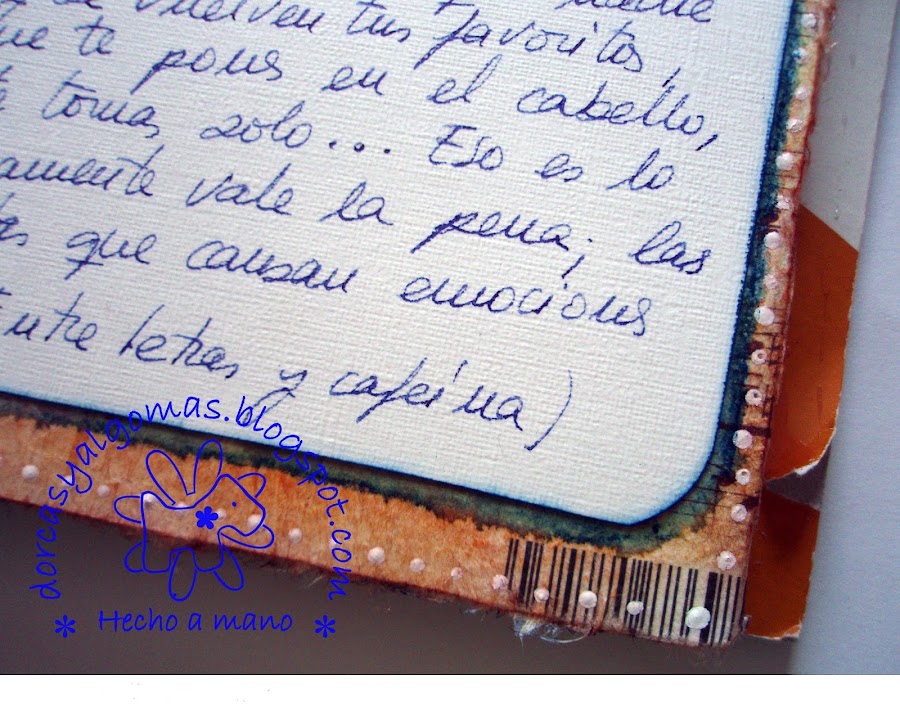 vuelven tus favoritos,
que te pones en el cabello,
tomas solo... Eso es lo
amente vale la pena; las
que causan emociones
Entre letras y cafeína)
dorcasyalgomas.blogspot.com
* Hecho a mano *